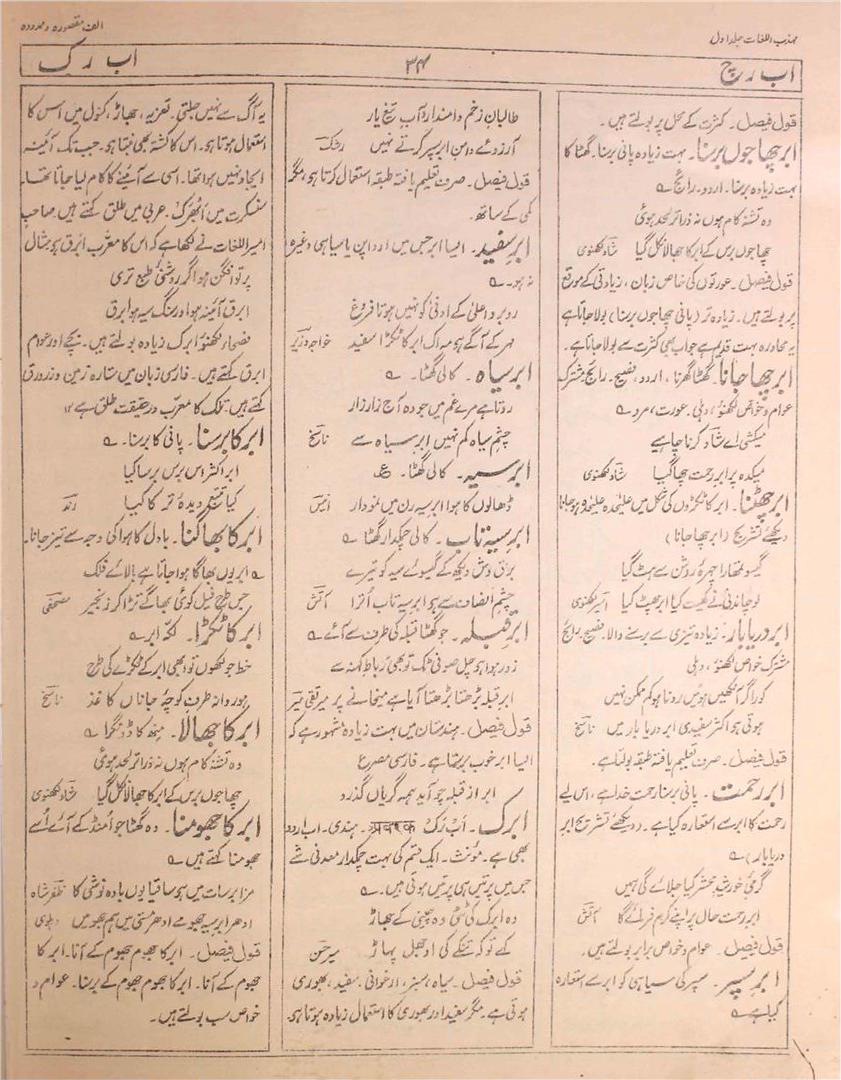 مہذب اللغات جلد اول
الف مقصورہ و ممدودہ
اب رچ
۳۴
اب رک
قول فیصل۔ کثرت کے محل پر بولتے ہیں۔
ابر چھاجوں برسنا۔ بہت زیادہ پانی برسنا۔ گھٹا کا
بہت زیادہ برسنا۔ اردو۔ رائج؎
وہ تشنہ کام ہوں نہ ذرا تر لحد ہوئی
چھاجوں برس کے ابر کا جھالا نکل گیا شاد لکھنوی
قول فیصل۔ عورتوں کی خاص زبان، زیادتی کے موقع
پر بولتے ہیں۔ زیادہ تر (پانی چھاجوں برسنا) بولا جاتا ہے
یہ محاورہ بہت قدیم ہے جو اب بھی کثرت سے بولا جاتا ہے۔
ابر چھا جانا۔ گھٹا گھرنا، اردو، فصیح۔ رائج مشترک
عوام و خواص لکھنؤ، دہلی۔ عورت، مرد؎
میکشی اے شاد کرنا چاہیے
میکدہ پر ابر رحمت چھا گیا شاد لکھنوی
ابر چھٹنا۔ ابر کا ٹکڑوں کی شکل میں علیٰحدہ علیٰحدہ ہو جانا
دیکھئے تشریح (ابر چھا جانا)
گیسو تمھارا چہرۂ روشن سے ہٹ گیا
لو چاندنی نے کھیت کیا ابر پھٹ گیا امیر لکھنوی
ابر دریا بار۔ زیادہ تیزی سے برسنے والا۔ فصیح۔ رائج
مشترک خواص لکھنؤ، دہلی
کور اگر آنکھیں ہوئیں رونا ہو کم ممکن نہیں
ہوتی ہو اکثر سفیدی ابر دریا بار میں ناسخ
قول فیصل۔ صرف تعلیم یافتہ طبقہ بولتا ہے۔
ابر رحمت۔ پانی برسنا رحمت خدا ہے، اس لیے
رحمت کا ابر سے استعارہ کیا ہے۔ (دیکھئے تشریح ابر
دریا بار)؎
گرمیٔ خورشید محشر کیا جلائے گی ہمیں
ابر رحمت حال پر اپنے کرم فرمائے گا آتش
قول فیصل۔ عوام و خواص برابر بولتے ہیں۔
ابر سپر۔ سپر کی سیاہی کو ابر سے استعارہ
کیا ہے؎
طالبان زخم دامندار آب تیغ یار
آرزوئے دامن ابر سپر کرتے نہیں رشک
قول فیصل۔ صرف تعلیم یافتہ طبقہ استعمال کرتا ہو، مگر
کمی کے ساتھ۔
ابر سفید۔ ایسا ابر جس میں اودا پن یا سیاہی وغیرہ
نہ ہو۔؎
روبرو اعلیٰ کے ادنیٰ کو نہیں ہوتا فروغ
مہر کے آگے ہو مہ اک ابر کا ٹکڑا سفید خواجہ وزیر
ابر سیاہ۔ کالی گھٹا۔؎
روتا ہے مرے غم میں جو وہ آج زار زار
چشم سیاہ کم نہیں ابر سیاہ سے ناسخ
ابر سیہ۔ کالی گھٹا۔ ع
ڈھالوں کا ہوا ابر سیہ رن میں نمودار انیس
ابر سیہ تاب۔ کالی چمکدار گھٹا؎
برق وش دیکھ کے گیسوئے سیہ کو تیرے
چشم انصاف سے ہو ابر سیہ تاب اُترا آتش
ابر قبلہ۔ جو گھٹا قبلہ کی طرف سے آئے؎
زور ہوا ہو چل صوفی ٹک تو بھی رباط کہنہ سے
ابر قبلہ بڑھتا بڑھتا آیا ہے میخانے پر میر تقی میر
قول فیصل۔ ہندوستان میں بہت زیادہ مشہور ہے کہ
ایسا ابر خوب برستا ہے۔ فارسی مصرع
ابر از قبلہ چو آید ہمہ گریاں گذرد
ابرک۔ اَب رَک अबरक ہندی۔ اب اردو
بھی ہے۔ مؤنث۔ ایک قسم کی بہت چمکدار معدنی شے
جس میں پرتیں ہی پرتیں ہوتی ہیں۔؎
وہ ابرک کی ٹٹی وہ چینی کے جھاڑ
کہے تو کہ تنکے کی اوجھل پہاڑ میر حسن
قول فیصل۔ سیاہ، سبز، ارغوانی، سفید، بھوری
ہوتی ہے۔ مگر سفید اور بھوری کا استعمال زیادہ ہوتا ہو
یہ آگ سے نہیں جلتی۔ تعزیہ، جھاڑ، کنول میں اس کا
استعمال ہوتا ہو۔ اس کا کشتہ بھی بنتا ہو۔ جب تک آئینہ
ایجاد نہیں ہوا تھا۔ اسی سے آئینے کا کام لیا جاتا تھا۔
سنسکرت میں اَبھرک۔ عربی میں طلق کہتے ہیں۔ صاحب
امیر اللغات نے لکھا ہے کہ اس کا معرّب ابرق ہو، مثال
پرتو افگن ہو اگر روشنیٔ طبع تری
ابرق آئینہ ہو اور سنگ سیہ ہو ابرق
فصحاء لکھنؤ ابرک زیادہ بولتے ہیں۔ بچے اور عوام
ابرق کہتے ہیں۔ فارسی زبان میں ستارہ زمین و زرورق
کہتے ہیں۔ تلک کا معرب در حقیقت طلق ہے ۱۲
ابر کا برسنا۔ پانی کا برسنا۔؎
ابر اکثر اس برس برسا کیا
کیا تتبع دیدۂ تر کا کیا رند
ابر کا بھاگنا۔ بادل کا ہوا کی وجہ سے تیز جانا۔
؎ ابر یوں بھاگا ہوا جاتا ہے بالائے فلک
جس طرح فیل کوئی بھاگے تڑا کر زنجیر مصحفی
ابر کا ٹکڑا۔ لکۂ ابر؎
خط جو لکھوں تو ابھی ابر کے ٹکڑے کی طرح
ہو روانہ طرف کوچۂ جاناں کاغذ ناسخ
ابر کا جھالا۔ مینھ کا ڈونگرا؎
وہ تشنہ کام ہوں نہ ذرا تر لحد ہوئی
چھاجوں برس کے ابر کا جھالا نکل گیا شاد لکھنوی
ابر کا جھومنا۔ وہ گھٹا جو اُمنڈ کے آئے اُسے
جھومنا کہتے ہیں؎
مزا برسات میں ہو ساقیا یوں بادہ نوشی کا ظفر شاہ
ادھر ابر سیہ جھومے ادھر مستی میں ہم جھومیں دہلوی
قول فیصل۔ ابر کا جھوم جھوم کے آنا۔ ابر کا
جھوم کے آنا۔ ابر کا جھوم جھوم کے برسنا۔ عوام و
خواص سب بولتے ہیں۔